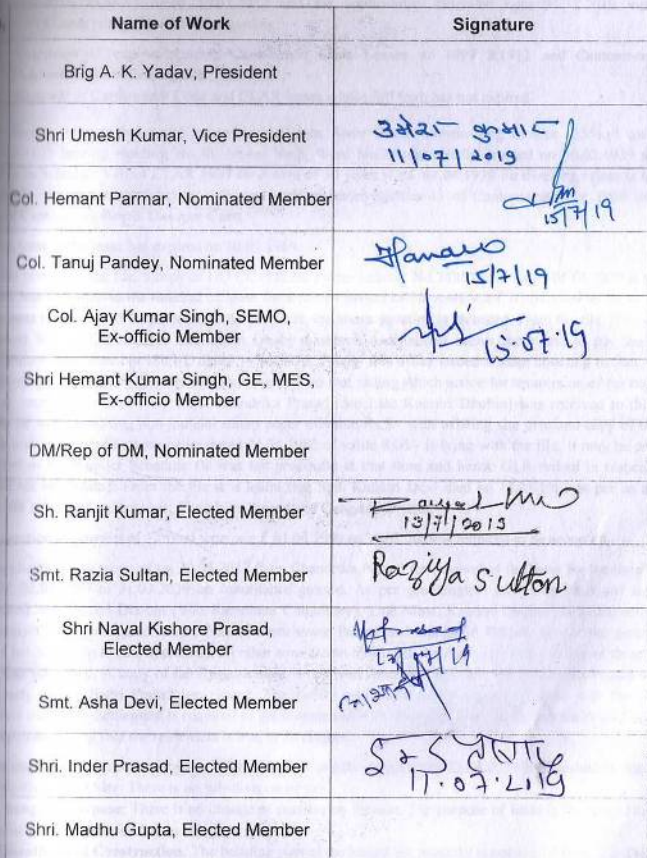 Name of Work Signature
Brig A. K. Yadav, President
Shri Umesh Kumar, Vice President
उमेश कुमार
11/07/2019
Col. Hemant Parmar, Nominated Member
15/7/19
Col. Tanuj Pandey, Nominated Member
15/7/19
Col. Ajay Kumar Singh, SEMO,
Ex-officio Member
15.07.19
Shri Hemant Kumar Singh, GE, MES,
Ex-officio Member
DM/Rep of DM, Nominated Member
Sh. Ranjit Kumar, Elected Member
13/7/2019
Smt. Razia Sultan, Elected Member
Raziya Sultan
Shri Naval Kishore Prasad,
Elected Member
Smt. Asha Devi, Elected Member
Shri. Inder Prasad, Elected Member
11.07.2019
Shri. Madhu Gupta, Elected Member